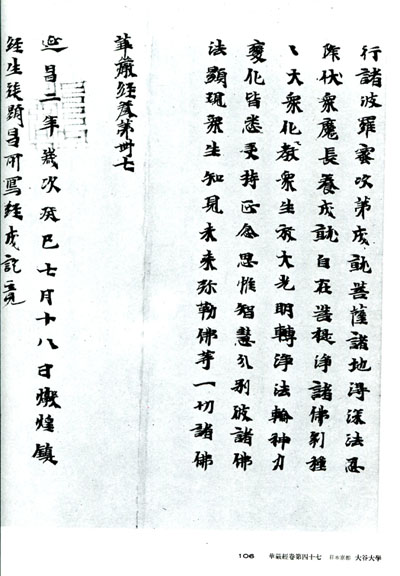 行諸波羅蜜次第成就菩薩諸地得深法忍
降伏衆魔長養成就自在菩提淨諸佛刹種
〻大衆化教衆生放大光明轉淨法輪神力
變化皆悉受持正念思惟智慧分別彼諸佛
法顯現衆生知見未来弥勒佛等一切諸佛
華嚴經卷第卌七
延昌二年歲次癸巳七月十八日燉煌鎮
經生張顯昌所寫經成訖竟
106 華嚴經卷第四十七 日本京都 大谷大學